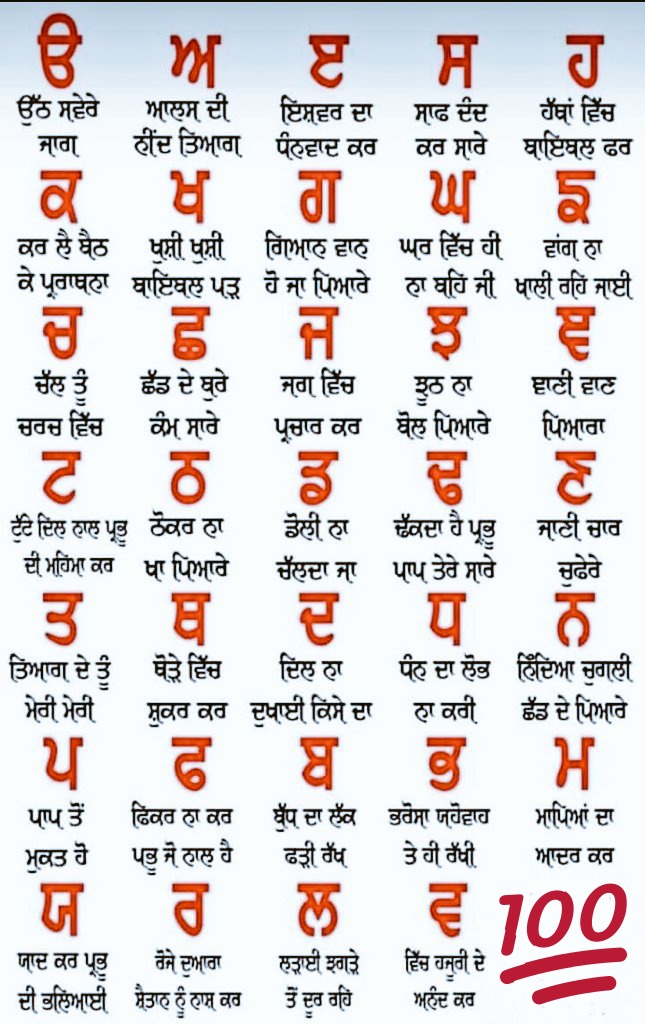 ੳ ਅ ੲ ਸ ਹ
ਉੱਠ ਸਵੇਰੇ ਆਲਸ ਦੀ ਇਸ਼ਵਰ ਦਾ ਸਾਫ ਦੰਦ ਹੱਥਾਂ ਵਿੱਚ
ਜਾਗ ਨੀਂਦ ਤਿਆਗ ਧੰਨਵਾਦ ਕਰ ਕਰ ਸਾਰੇ ਬਾਇਬਲ ਫਰ
ਕ ਖ ਗ ਘ ਙ
ਕਰ ਲੈ ਬੈਠ ਖੁਸ਼ੀ ਖੁਸ਼ੀ ਗਿਆਨ ਵਾਨ ਘਰ ਵਿੱਚ ਹੀ ਵਾਂਗ ਨਾ
ਕੇ ਪ੍ਰਰਾਥਨਾ ਬਾਇਬਲ ਪੜ੍ਹ ਹੋ ਜਾ ਪਿਆਰੇ ਨਾ ਬਹਿ ਜੀ ਖਾਲੀ ਰਹਿ ਜਾਈ
ਚ ਛ ਜ ਝ ਞ
ਚੱਲ ਤੂੰ ਛੱਡ ਦੇ ਬੁਰੇ ਜਗ ਵਿੱਚ ਝੂਠ ਨਾ ਞਾਣੀ ਵਾਣ
ਚਰਚ ਵਿੱਚ ਕੰਮ ਸਾਰੇ ਪ੍ਰਚਾਰ ਕਰ ਬੋਲ ਪਿਆਰੇ ਪਿਆਰਾ
ਟ ਠ ਡ ਢ ਣ
ਟੁੱਟੇ ਦਿਲ ਨਾਲ ਪ੍ਰਭੂ ਠੋਕਰ ਨਾ ਡੋਲੀ ਨਾ ਢੱਕਦਾ ਹੈ ਪ੍ਰਭੂ ਜਾਣੀ ਚਾਰ
ਦੀ ਮਹਿਮਾ ਕਰ ਖਾ ਪਿਆਰੇ ਚੱਲਦਾ ਜਾ ਪਾਪ ਤੇਰੇ ਸਾਰੇ ਚੁਫੇਰੇ
ਤ ਥ ਦ ਧ ਨ
ਤਿਆਗ ਦੇ ਤੂੰ ਥੋੜੇ ਵਿੱਚ ਦਿਲ ਨਾ ਧੰਨ ਦਾ ਲੋਭ ਨਿੰਦਿਆ ਚੁਗਲੀ
ਮੇਰੀ ਮੇਰੀ ਸ਼ੁਕਰ ਕਰ ਦੁਖਾਈ ਕਿਸੇ ਦਾ ਨਾ ਕਰੀ ਛੱਡ ਦੇ ਪਿਆਰੇ
ਪ ਫ ਬ ਭ ਮ
ਪਾਪ ਤੋਂ ਫਿਕਰ ਨਾ ਕਰ ਬੁੱਧ ਦਾ ਲੱਕ ਭਰੋਸਾ ਯਹੋਵਾਹ ਮਾਪਿਆਂ ਦਾ
ਮੁਕਤ ਹੋ ਪ੍ਰਭੂ ਜੋ ਨਾਲ ਹੈ ਫੜੀ ਰੱਖ ਤੇ ਹੀ ਰੱਖੀ ਆਦਰ ਕਰ
ਯ ਰ ਲ ਵ 100
ਯਾਦ ਕਰ ਪ੍ਰਭੂ ਰੋਜੇ ਦੁਆਰਾ ਲੜਾਈ ਝਗੜੇ ਵਿੱਚ ਹਜੂਰੀ ਦੇ
ਦੀ ਭਲਿਆਈ ਸ਼ੈਤਾਨ ਨੂੰ ਨਾਸ਼ ਕਰ ਤੋਂ ਦੂਰ ਰਹਿ ਅਨੰਦ ਕਰ